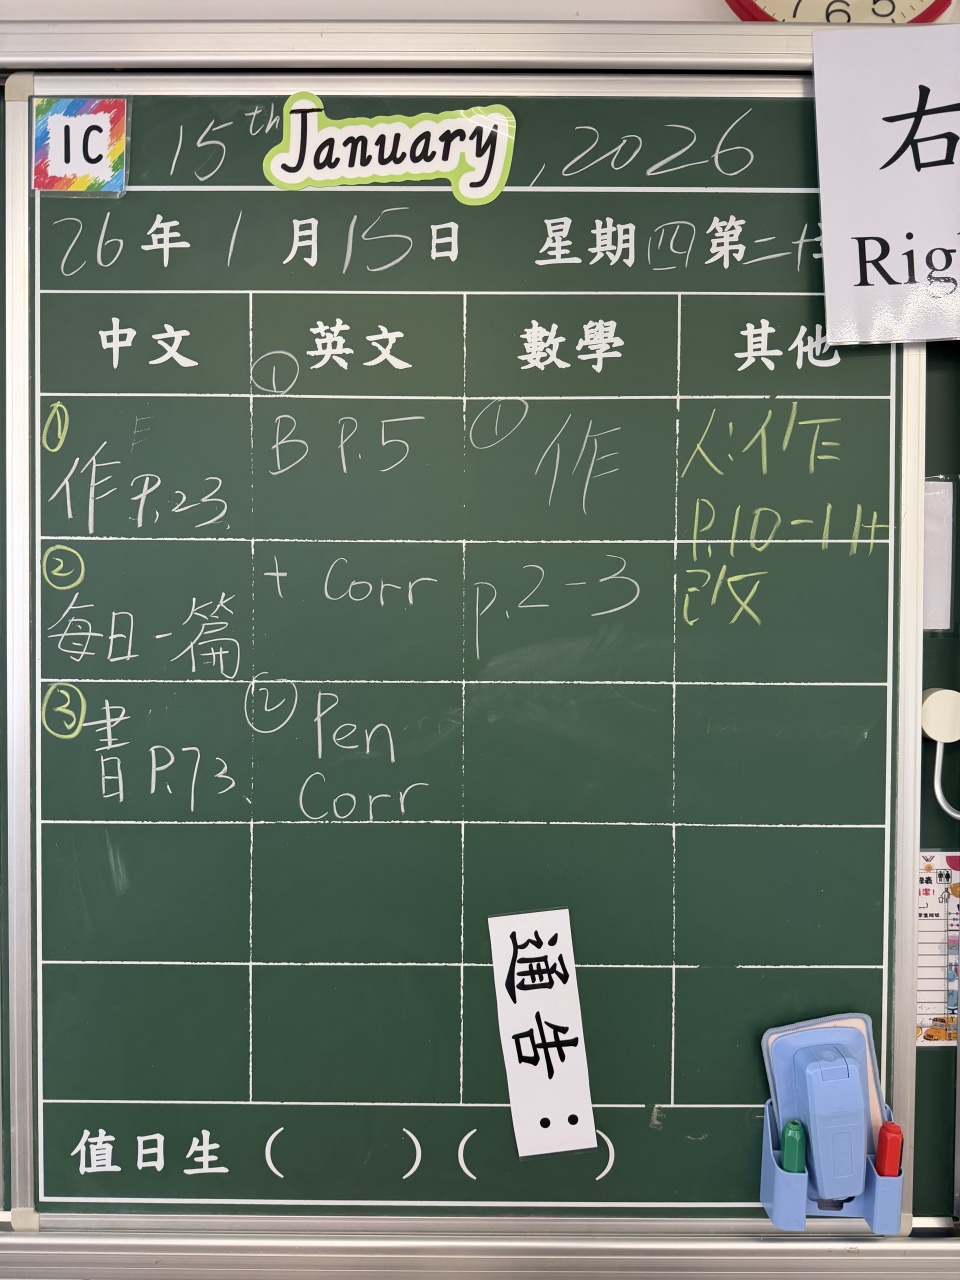 7 6 5
右
Rig
1C
15th January, 2026
26年1月15日 星期四第二十
中文 英文 數學 其他
① 作 P.23
② 每日一篇
③ 書 P.73
① B P.5
+ Corr
② Pen
Corr
① 作
p.2-3
人:作
P.10-11+
改
通告:
值日生( )( )